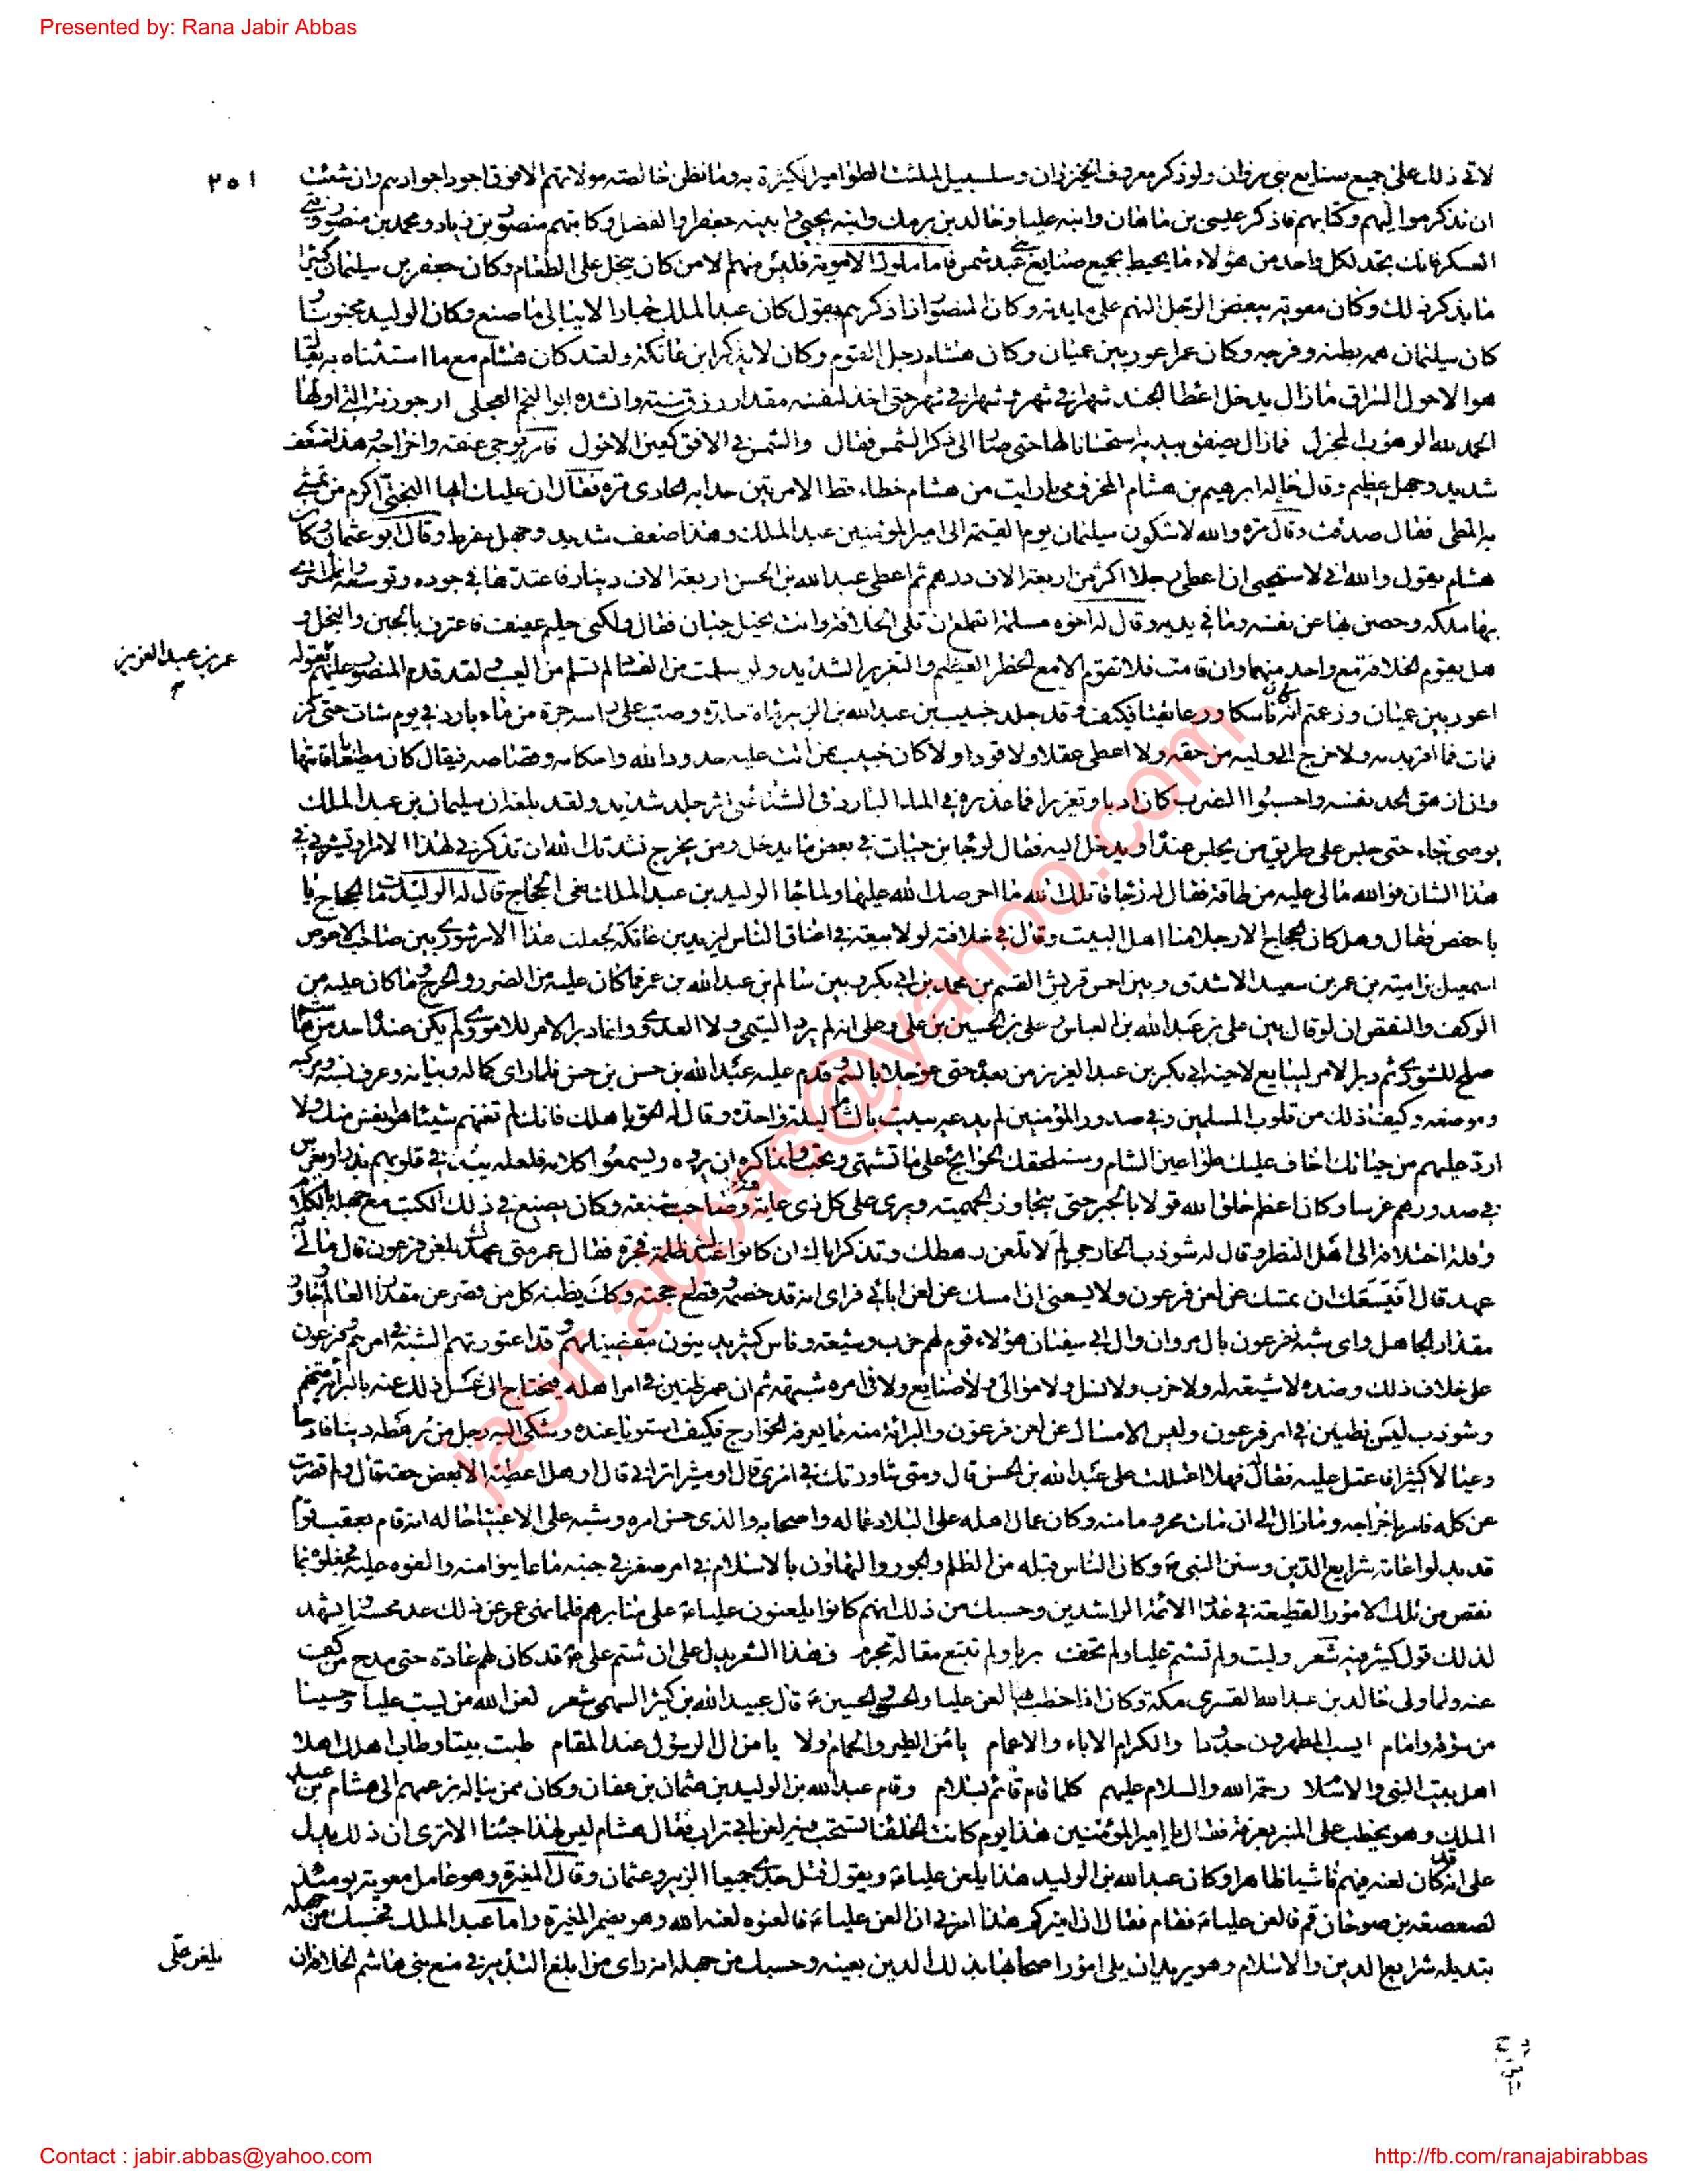 Presented by: Rana Jabir Abbas
٢٥١
لاتى ذلك على جميع صنايع بنى مروان ولو ذكر معروف الخيزران وسلسبيل لملئت الطوامير الكثيرة به وما نظن خالصته مولاتهم الا فوق اجود اجوادهم وان شئت
ان تذكر مواليهم وكتابهم فاذكر عيسى بن ماهان وابنه عليا وخالد بن برمك وابنه يحيى وابنيه جعفرا والفضل وكاتبهم منصور بن زياد ومحمد بن منصور
العسكر فانك تجد لكل واحد من هؤلاء ما يحيط بجميع صنايع بنى عبد شمس فاما ملوك الاموية فليس منهم الا من كان يبخل على الطعام وكان جعفر بن سليمان كثيرا
ما يذكر ذلك وكان معوية يبغض الرجل النهم على مايدته وكان المنصور اذا ذكرهم يقول كان عبد الملك جبارا لا يبالى ما صنع وكان الوليد مجنونا
كان سليمان همه بطنه وفرجه وكان عمر اعور بين عميان وكان هشام رجل القوم وكان لا يذكر ابن عاتكة ولقد كان هشام مع ما استثناه به يقال
هو الاحول السراق ما زال يدخل اعطا الجند شهرا فى شهر وشهرا فى شهر حتى اخذ لنفسه مقدار رزق سنته وانشده ابو النجم العجلى ارجوزته التى اولها
الحمد لله الوهوب المجزل فما زال يصفق بيديه استحسانا لها حتى صار الى ذكر الشمس فقال والشمس فى الافق كعين الاحول فامر بوجى عنقه واخراجه وهذا ضعف
شديد وجهل عظيم وقال خاله ابرهيم بن هشام المخزومى ما رايت من هشام خطاء قط الا مرتين حدا به الحادى مرة فقال ان عليك ايها البختى اكرم من تمشى
به المطى فقال صدقت وقال مرة والله لاشكون سليمان يوم القيمة الى امير المؤمنين عبد الملك وهذا ضعف شديد وجهل مفرط وقال ابو عثمان كان
هشام يقول والله انى لاستحيى ان اعطى رجلا اكثر من اربعة الاف درهم ثم اعطى عبد الله بن الحسن اربعة الاف دينار فاعتدها فى جوده وتوسعه وانما اشترى
بها ملكه وحصن بها عن نفسه وما فى يديه وقال له اخوه مسلمة اتطمع ان تلى الخلافة وانت بخيل جبان فقال ولكنى حليم عفيف فاعترف بالجبن والبخل و
هل يقوم الخلافة مع واحد منهما وان قامت فلا تقوم الا مع الخطر العظيم والتغرير الشديد ولو سلمت من الفساد لم تسلم من العيب ولقد قدم المنصور عليهم بقوله
عمر بن عبد العزيز
اعور بين عميان وزعمتم انه كان ناسكا ورعا تقيا فكيف وقد جلد خبيب بن عبد الله بن الزبير مائة جلدة وصب على راسه جرة من ماء بارد فى يوم شات حتى كز
فمات فما اقر بدمه ولا خرج الى وليه من حقه ولا اعطى عقلا ولا قودا ولا كان خبيب ممن اتت عليه حدود الله واحكامه وقصاصه فيقال كان مطيعا باقامتها
وانه ازهق الحد نفسه واحسبوا الضرب كان ادبا وتعزيرا فما عذره فى الماء البارد فى الشتاء على اثر جلد شديد ولقد بلغه ان سليمان بن عبد الملك
يوصى فجاء حتى جلس على طريق من يجلس عنده او يدخل اليه فقال لرجا بن حيات فى بعض ما يدخل ومن يخرج نشدتك الله ان تذكرنى لهذا الامر وتشير بى فى
هذا الشان فوالله ما لى عليه من طاقة فقال له رجا قاتلك الله ما احرصك الله عليها ولما جا الوليد بن عبد الملك بنعى الحجاج قال له الوليد مات الحجاج يا
با حفص فقال وهل كان الحجاج الا رجلا منا اهل البيت وقال فى خلافته لولا بيعة فى اعناق الناس ليزيد بن عاتكة لجعلت هذا الامر شورى بين صاحب الاعوص
اسمعيل بن امية بن عمر بن سعيد الاشدق وبين احمس قريش القسم بن محمد بن ابى بكر وبين سالم بن عبد الله بن عمر فما كان عليه من الضرر والحرج وما كان عليه من
الوكف والنقص ان لو قال بين على بن عبد الله بن العباس وعلى بن الحسين بن على وعلى انه لم يرد التيمى ولا العدوى وانما دبر الامر للاموى ولم يكن عنده احد من هاشم
صلح للشورى ثم دبر الامر ليبايع لاخيه ابى بكر بن عبد العزيز من بعده حتى عوجل بالسم وقدم عليه عبد الله بن حسن بن حسن فلما راى كماله وبيانه وعرف نسبه ومركبه
وموضعه وكيف ذلك من قلوب المسلمين وفى صدور المؤمنين لم يدعه يبيت بالشام ليلة واحدة وقال له الحق باهلك فانك لم تغنهم شيئا هو انفس منك ولا
ارد عليهم من حياتك اخاف عليك طواعين الشام وستلحقك الحوايج على ما تشتهى وتحب وانما كره ان يروه ويسمعوا كلامه فلعله يبث فى قلوبهم بذرا ويغرس
فى صدورهم غرسا وكان اعظم خلق الله قولا بالجبر حتى يتجاوز الجهمية ويربى على كل ذى غاية وصاحب شنعة وكان يصنع فى ذلك الكتب مع جهله بالكلام
وقلة اختلافه الى اهل النظر وقال له شوذب الخارجى لم لا تلعن رهطك وتذكر اباك ان كانوا عندك ظلمة فجرة فقال عمر متى عهدك بلعن فرعون قال ما لى
عهد قال افيسعك ان تمسك عن لعن فرعون ولا يسعنى ان امسك عن لعن ابائى فراى انه قد خصمه وقطع حجته وكك يظنه كل من قصر عن مقدار العالم وجاوز
مقدار الجاهل واى شبه لفرعون بال مروان وال ابى سفيان هؤلاء قوم لهم حزب وشيعة وناس كثير يدينون بتفضيلهم وقد اعتورتهم الشبه فى امرهم وفرعون
على خلاف ذلك وضده لا شيعة له ولا حزب ولا نسل ولا موالى ولا صنايع ولا فى امره شبهة ثم ان عمر ظنين فى امر اهله فيحتاج الى غسل ذلك عنه بالبرائة منهم
وشوذب ليس بظنين فى امر فرعون وليس الامساك عن لعن فرعون والبرائة منه مما يعرفه الخوارج فكيف استويا عنده وشكى اليه رجل من رهطه دينا فادحا
وعيالا كثيرا فاعتل عليه فقال له فهلا اعتللت على عبد الله بن الحسن قال ومتى شاورتك فى امرى قال او مشيرا ترانى قال او هل اعطيته الا بعض حقه قال ولم قصرت
عن كله فامر باخراجه وما زال الى ان مات محروما منه وكان عمال اهله على البلاد عماله واصحابه والذى حسن امره وشبه على الاغبياء حاله انه قام بعقب قوم
قد بدلوا عامة شرايع الدين وسنن النبى ص وكان الناس قبله من الظلم والجور والتهاون بالاسلام فى امر صغر فى جنبه ما عاينوا منه والفوه عليه فجعلوه بما
نقص من تلك الامور الفظيعة فى عداد الائمة الراشدين وحسبك من ذلك انهم كانوا يلعنون عليا ع على منابرهم فلما نهى عمر عن ذلك عد محسنا يشهد
لذلك قول كثير فيه شعر وليت ولم تشتم عليا ولم تخف بريا ولم تتبع مقالة مجرم وهذا الشعر يدل على ان شتم على ع قد كان لهم عادة حتى مدح من كف
عنه ولما ولى خالد بن عبد الله القسرى مكة وكان اذا خطب بها لعن عليا والحسن والحسين ع قال عبيد الله بن كثير السهمى شعر لعن الله من يسب عليا وحسينا
من سوقة وامام ايسب المطهرون جدودا والكرام الاباء والاعمام يامن الطير والحمام ولا يامن ال الرسول عند المقام طبت بيتا وطاب اهلك اهلا
اهل بيت النبى والاسلام رحمة الله والسلام عليهم كلما قام قائم بسلام وقام عبد الله بن الوليد بن عثمان بن عفان وكان ممن يناله بزعمهم الى هشام بن عبد
الملك وهو يخطب على المنبر بعرفة فقال يا امير المؤمنين هذا يوم كانت الخلفا تستحب فيه لعن ابى تراب فقال هشام ليس لهذا جئنا الا ترى ان ذلك يدل
على انه قد كان لعنه فيهم فاشيا ظاهرا وكان عبد الله بن الوليد هذا يلعن عليا ع ويقول قتل جدى جميعا الزبير وعثمان وقال المغيرة وهو عامل معوية يومئذ
لصعصعة بن صوحان قم فالعن عليا ع فقام فقال ان اميركم هذا امرنى ان العن عليا ع فالعنوه لعنه الله وهو يضمر المغيرة واما عبد الملك فحسبك من جهله
بتديله شرايع الدين والاسلام وهو يريد ان يلى امور اصحابها بذلك الدين بعينه وحسبك من جهله انه راى من ابلغ التدبير فى منع بنى هاشم الخلافة ان
يلعن على
jabir.abbas@yahoo.com
Contact : jabir.abbas@yahoo.com
http://fb.com/ranajabirabbas